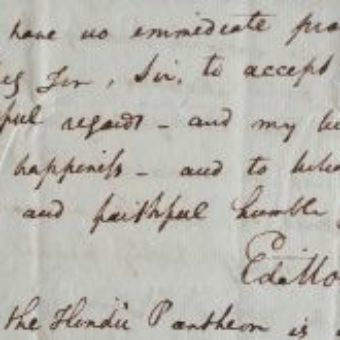 have no immediate
beg for, Sir, to accept
regards - and my
happiness - and to
and faithful humble
Ed Mo
the Hindū Pantheon is